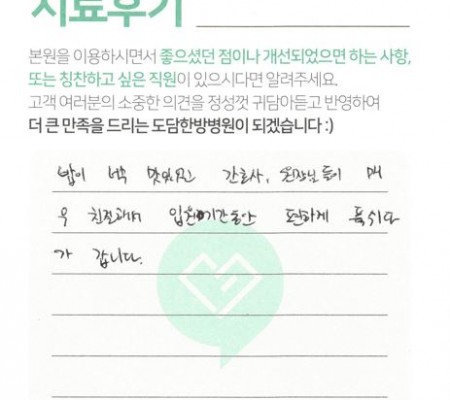 치료후기
본원을 이용하시면서 좋으셨던 점이나 개선되었으면 하는 사항,
또는 칭찬하고 싶은 직원이 있으시다면 알려주세요.
고객 여러분의 소중한 의견을 정성껏 귀담아듣고 반영하여
더 큰 만족을 드리는 도담한방병원이 되겠습니다 :)
밥이 너무 맛있었고 간호사, 원장님들이 매
우 친절하여 입원기간동안 편하게 푹쉬다
가 갑니다.